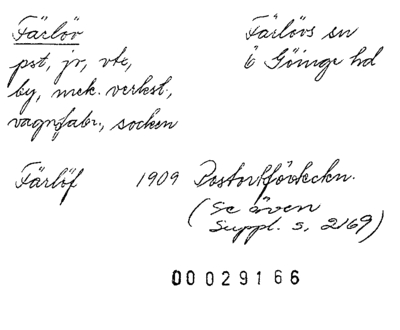 Färlöv
Färlövs sn
pst, jr, vte,
Ö Göinge hd
by, mek. verkst.,
vagnfabr., socken
Färlöf 1909 Postortförteckn.
(Se även
Suppl. s, 2169)
00029166